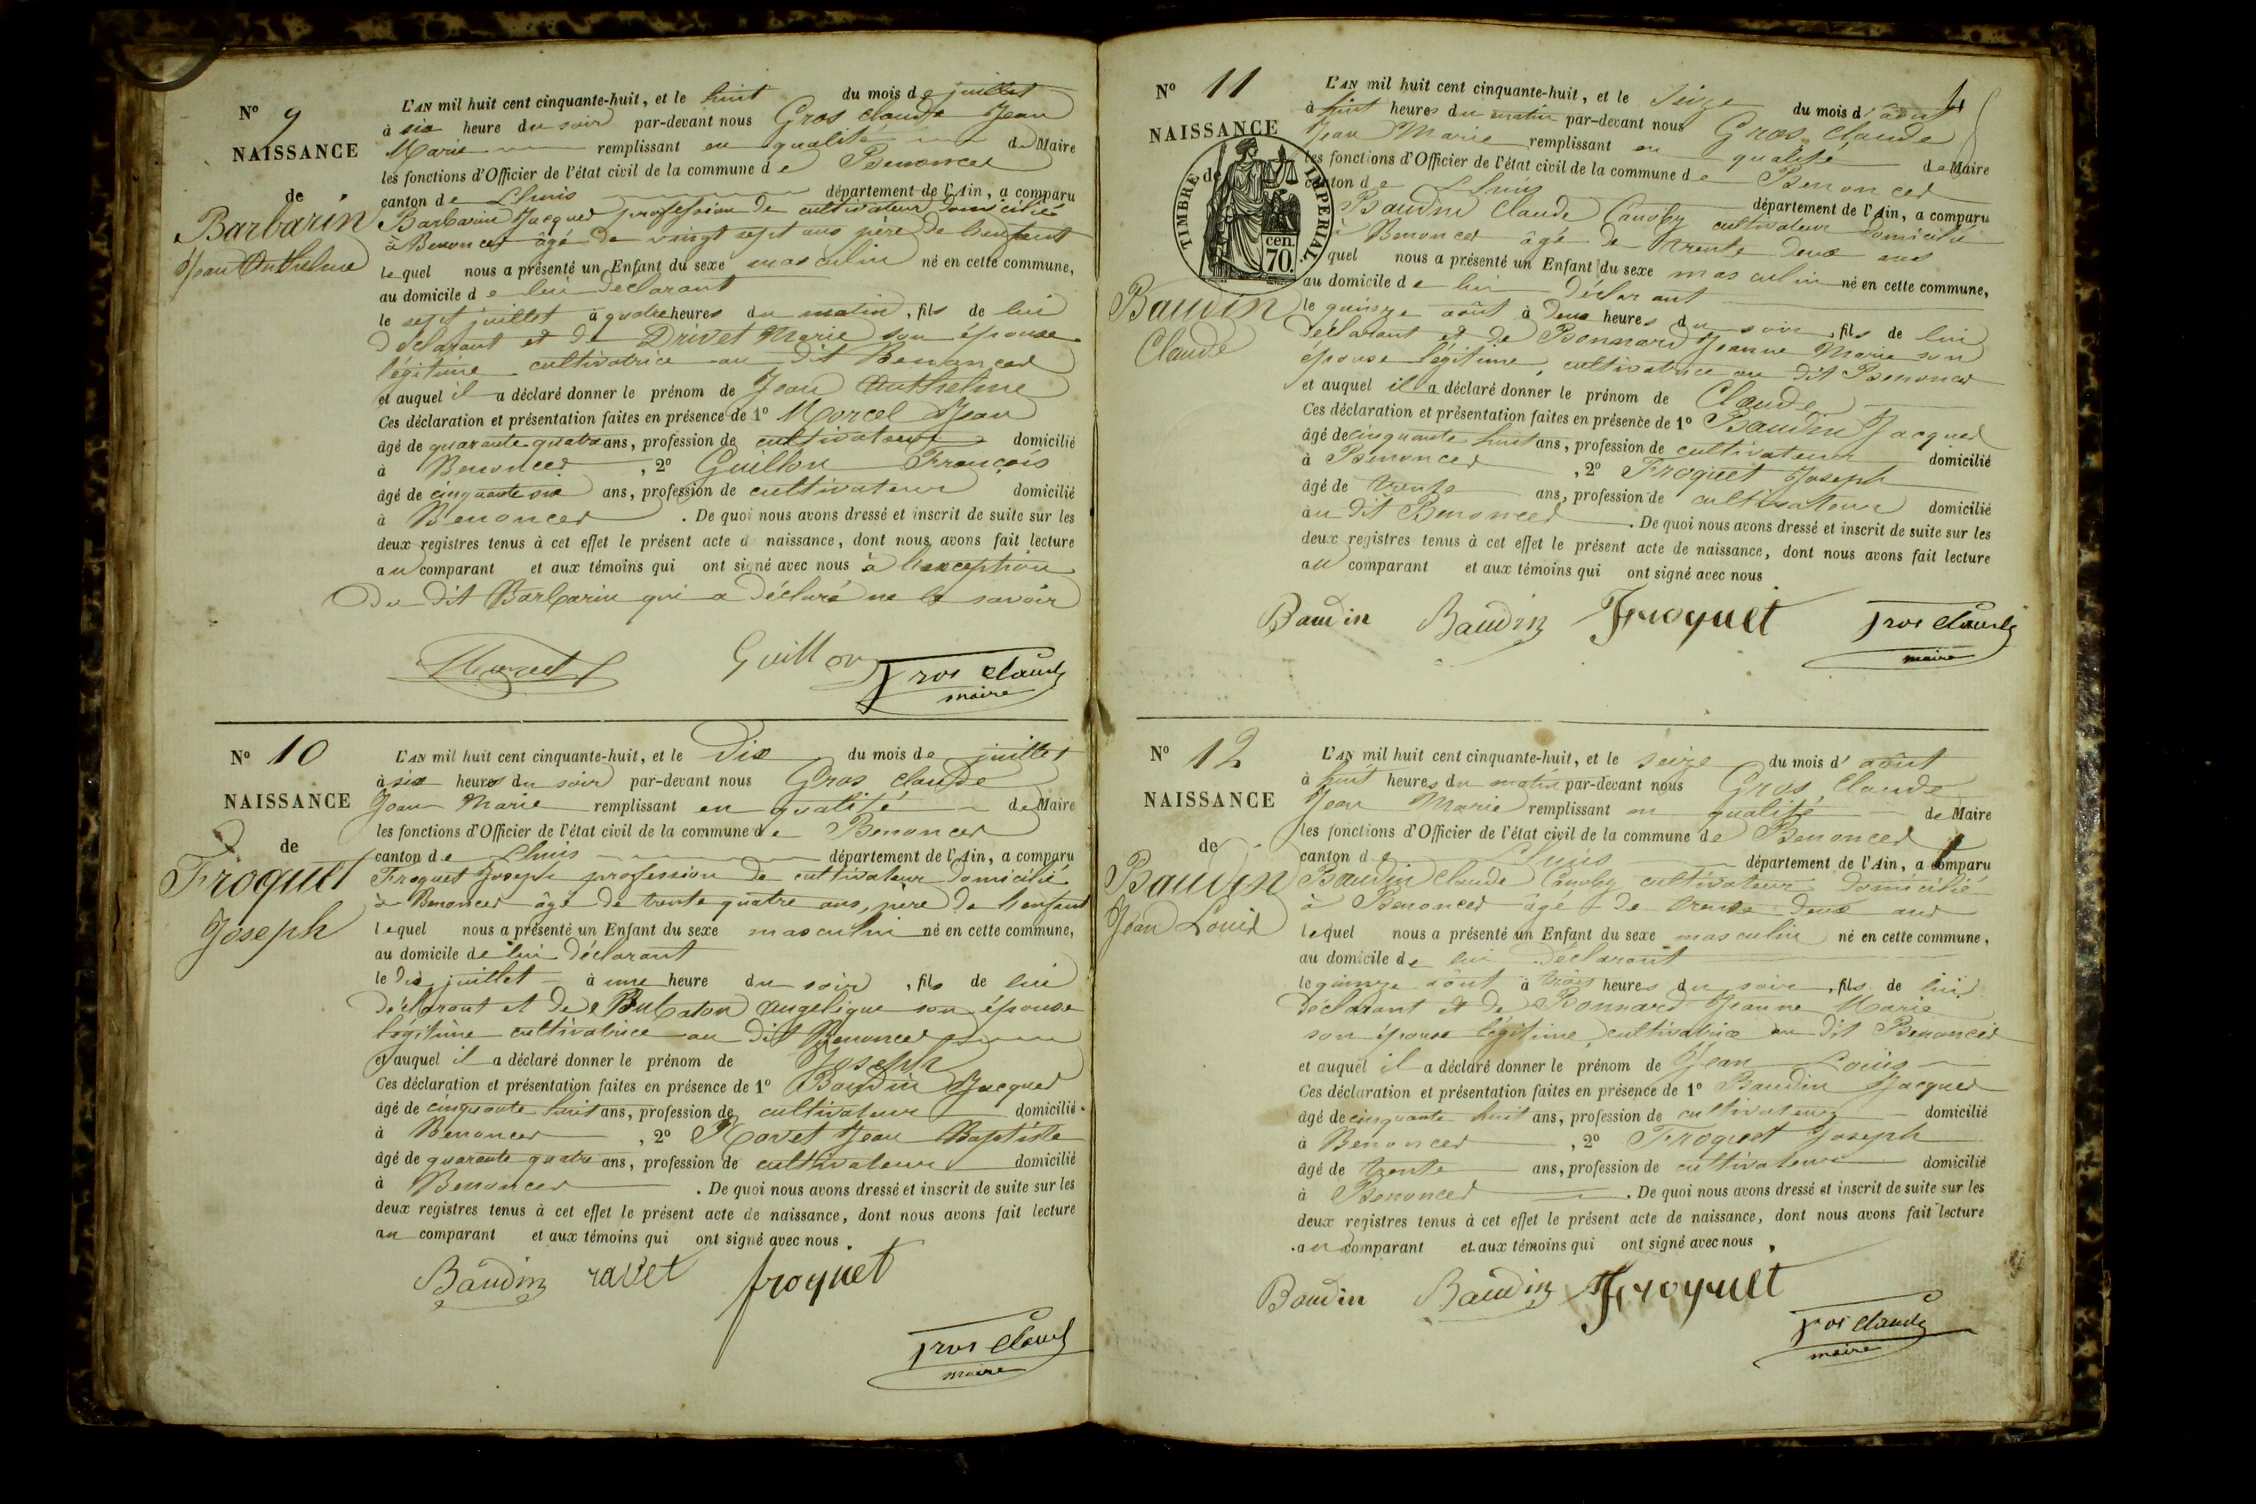 N° 9
NAISSANCE
de
Barbarin
Jean Anthelme
L'AN mil huit cent cinquante-huit, et le huit du mois de juillet
à six heure du soir par-devant nous Gros Claude Jean
Marie remplissant en qualité de Maire
les fonctions d'Officier de l'état civil de la commune de Benonces
canton de Lhuis département de l'Ain, a comparu
Barbarin Jacques profession de cultivateur domicilié
à Benonces âgé de vingt sept ans père de l'enfant
lequel nous a présenté un Enfant du sexe masculin né en cette commune,
au domicile de lui déclarant
le sept juillet à quatre heures du matin, fils de lui
déclarant et de Drivet Marie son épouse
légitime cultivatrice au dit Benonces
et auquel il a déclaré donner le prénom de Jean Anthelme
Ces déclaration et présentation faites en présence de 1° Marcel Jean
âgé de quarante quatre ans, profession de cultivateur domicilié
à Benonces, 2° Guillon François
âgé de cinquante six ans, profession de cultivateur domicilié
à Benonces. De quoi nous avons dressé et inscrit de suite sur les
deux registres tenus à cet effet le présent acte de naissance, dont nous avons fait lecture
au comparant et aux témoins qui ont signé avec nous à l'exception
du dit Barbarin qui a déclaré ne le savoir
Guillon
Gros Claude
maire
N° 10
NAISSANCE
de
Froquet
Joseph
L'AN mil huit cent cinquante-huit, et le dix du mois de juillet
à six heures du soir par-devant nous Gros Claude
Jean Marie remplissant en qualité de Maire
les fonctions d'Officier de l'état civil de la commune de Benonces
canton de Lhuis département de l'Ain, a comparu
Froquet Joseph profession de cultivateur domicilié
à Benonces âgé de trente quatre ans, père de l'enfant
lequel nous a présenté un Enfant du sexe masculin né en cette commune,
au domicile de lui déclarant
le dix juillet à une heure du soir, fils de lui
déclarant et de Angelique son épouse
légitime cultivatrice au dit Benonces
et auquel il a déclaré donner le prénom de Joseph
Ces déclaration et présentation faites en présence de 1° Baudin Jacques
âgé de cinquante huit ans, profession de cultivateur domicilié
à Benonces, 2° Ravet Jean Baptiste
âgé de quarante quatre ans, profession de cultivateur domicilié
à Benonces. De quoi nous avons dressé et inscrit de suite sur les
deux registres tenus à cet effet le présent acte de naissance, dont nous avons fait lecture
au comparant et aux témoins qui ont signé avec nous.
Baudin ravet froquet
Gros Claude
maire
N° 11
NAISSANCE
de
TIMBRE IMPERIAL
70 cen.
Baudin
Claude
L'AN mil huit cent cinquante-huit, et le seize du mois d'août
à huit heures du matin par-devant nous Gros Claude
Jean Marie remplissant en qualité de Maire
les fonctions d'Officier de l'état civil de la commune de Benonces
canton de Lhuis département de l'Ain, a comparu
Baudin Claude cultivateur domicilié
à Benonces âgé de trente deux ans
quel nous a présenté un Enfant du sexe masculin né en cette commune,
au domicile de lui déclarant
le quinze août à deux heures du soir, fils de lui
déclarant et de Bonnard Jeanne Marie son
épouse légitime, cultivatrice au dit Benonces
et auquel il a déclaré donner le prénom de Claude
Ces déclaration et présentation faites en présence de 1° Baudin Jacques
âgé de cinquante huit ans, profession de cultivateur domicilié
à Benonces, 2° Froquet Joseph
âgé de trente ans, profession de cultivateur domicilié
au dit Benonces. De quoi nous avons dressé et inscrit de suite sur les
deux registres tenus à cet effet le présent acte de naissance, dont nous avons fait lecture
au comparant et aux témoins qui ont signé avec nous
Baudin Baudin Froquet Gros Claude
maire
N° 12
NAISSANCE
de
Baudin
Jean Louis
L'AN mil huit cent cinquante-huit, et le seize du mois d'août
à huit heures du matin par-devant nous Gros, Claude
Jean Marie remplissant en qualité de Maire
les fonctions d'Officier de l'état civil de la commune de Benonces
canton de Lhuis département de l'Ain, a comparu
Baudin Claude cultivateur domicilié
à Benonces âgé de trente deux ans
lequel nous a présenté un Enfant du sexe masculin né en cette commune,
au domicile de lui déclarant
le quinze août à trois heures du soir, fils de lui
déclarant et de Bonnard Jeanne Marie
son épouse légitime, cultivatrice au dit Benonces
et auquel il a déclaré donner le prénom de Jean Louis
Ces déclaration et présentation faites en présence de 1° Baudin Jacques
âgé de cinquante huit ans, profession de cultivateur domicilié
à Benonces, 2° Froquet Joseph
âgé de trente ans, profession de cultivateur domicilié
à Benonces. De quoi nous avons dressé et inscrit de suite sur les
deux registres tenus à cet effet le présent acte de naissance, dont nous avons fait lecture
au comparant et aux témoins qui ont signé avec nous,
Baudin Baudin Froquet
Gros Claude
maire